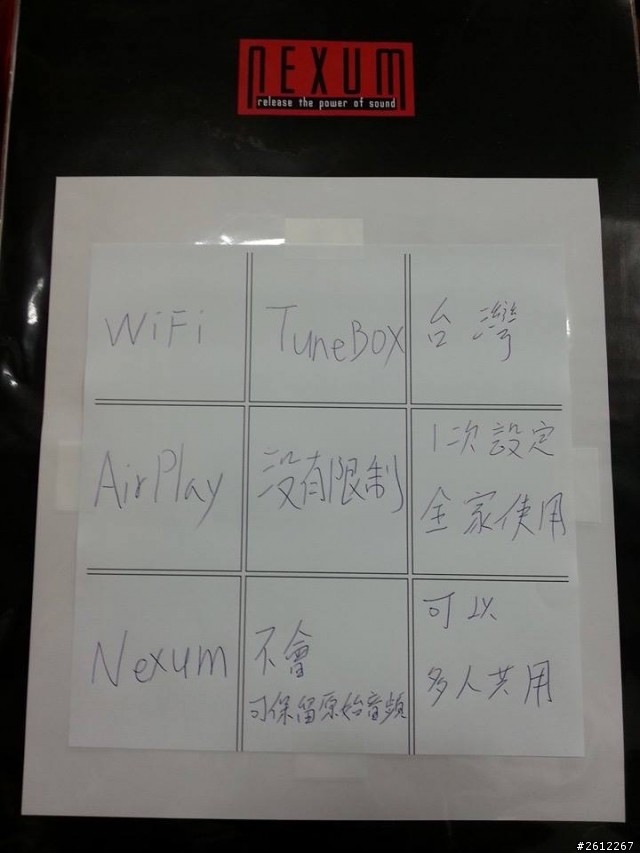 NEXUM
release the power of sound
WiFi
TuneBox
台灣
AirPlay
沒有限制
1次設定
全家使用
Nexum
不會
可保留原始音頻
可以
多人共用
#2612267